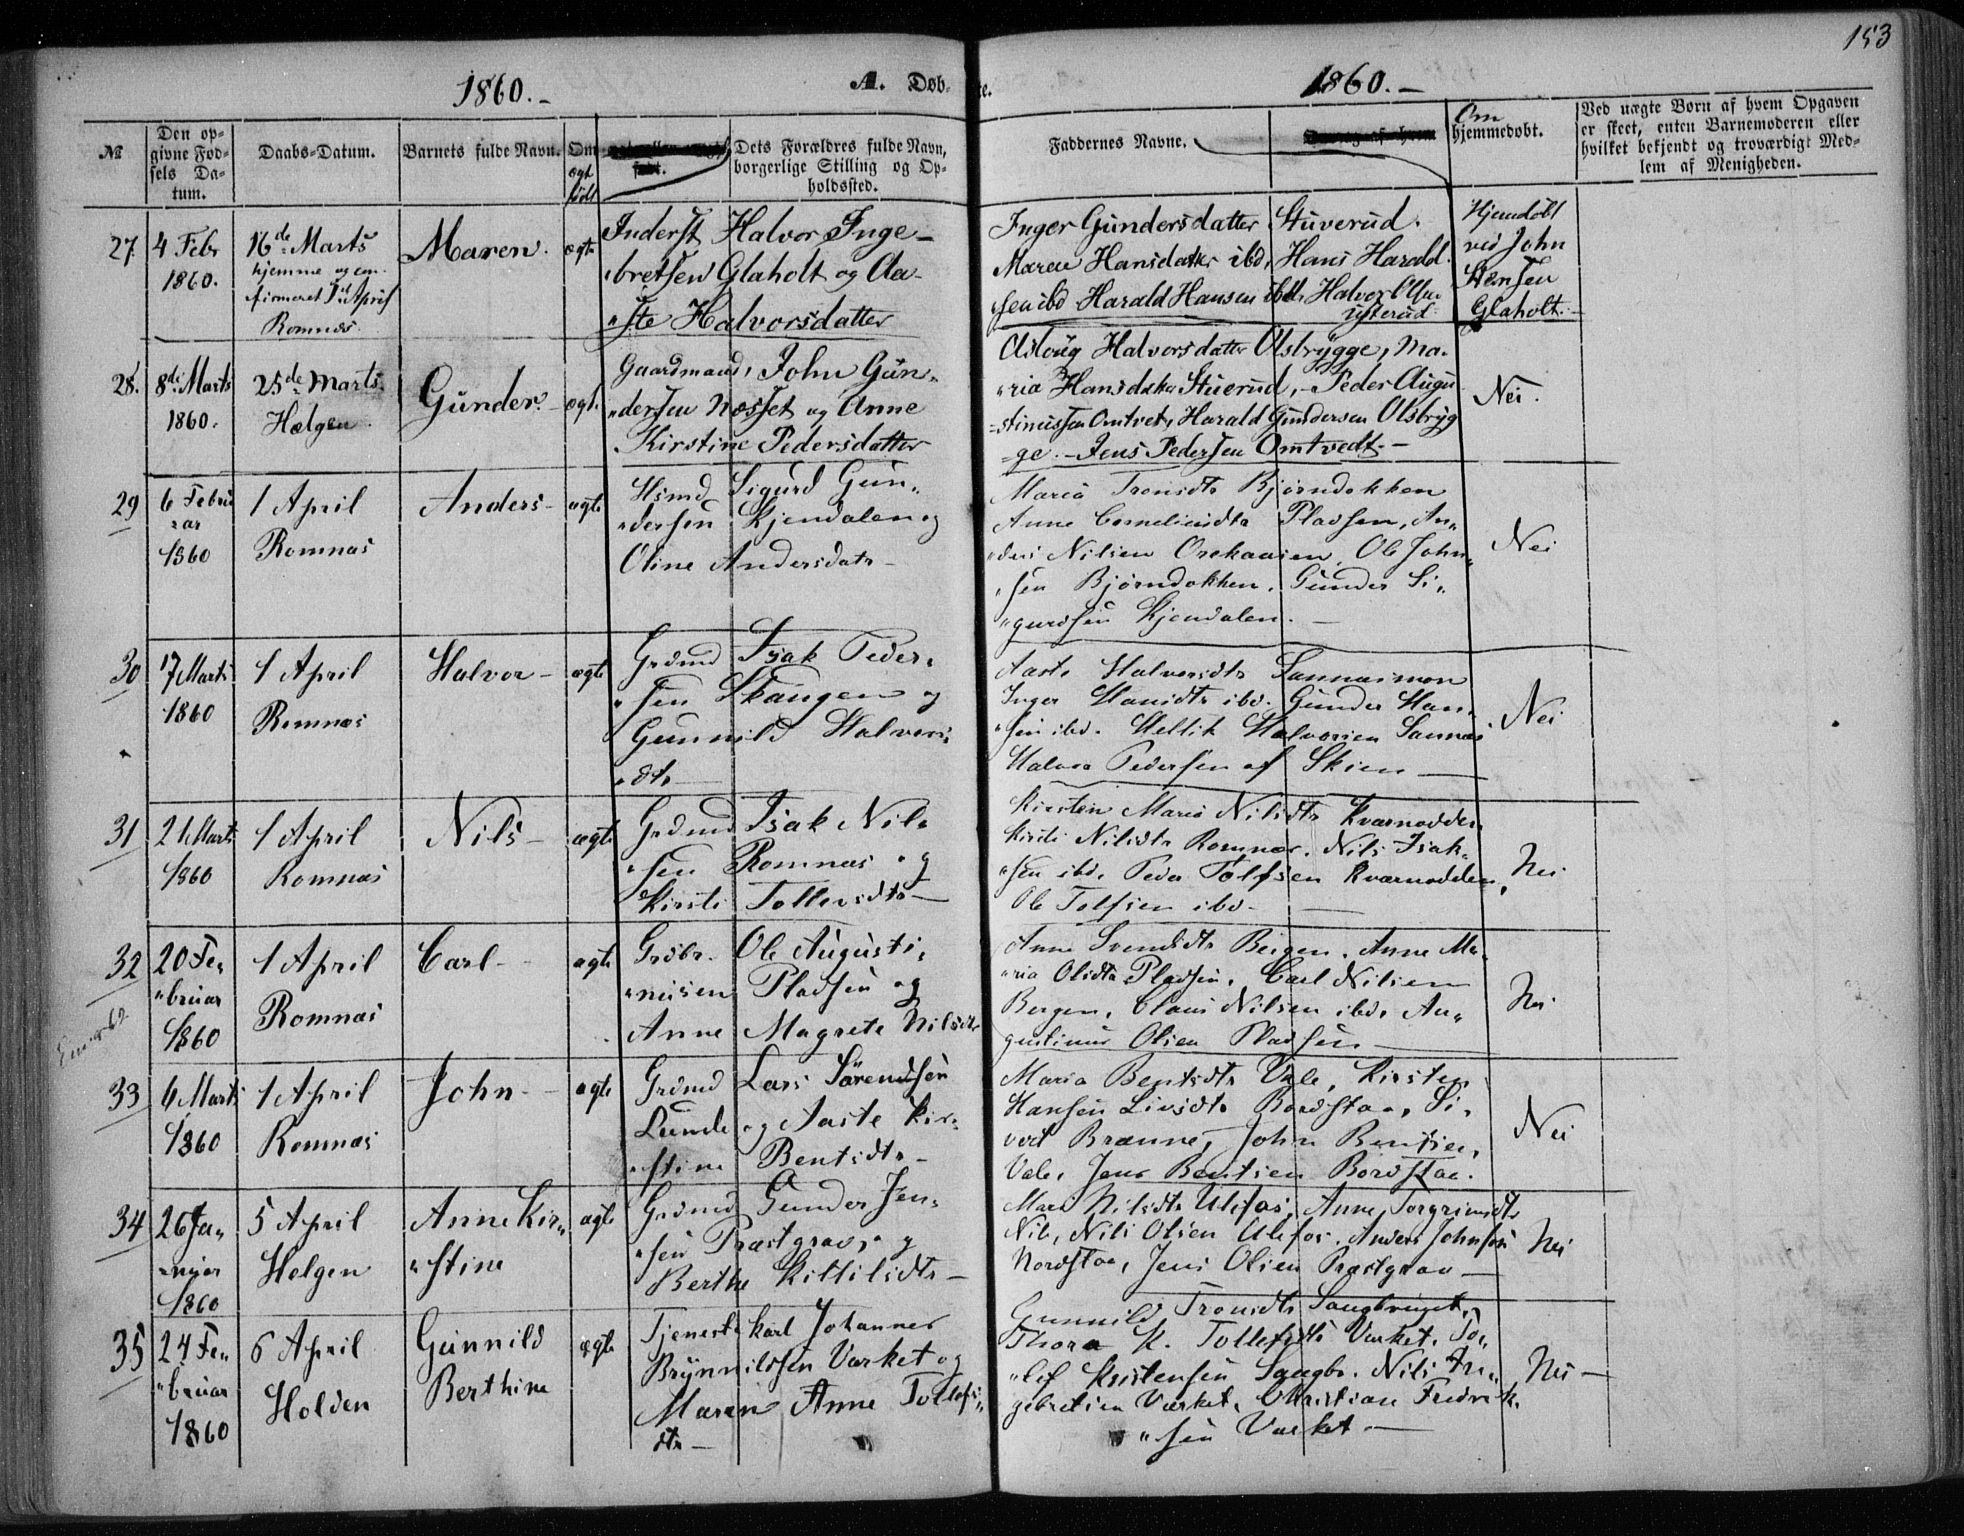 153
1860.-
A. Døb-
te.
1860.-
№
Den op-
givne Fød-
sels Da-
tum.
Daabs-Datum.
Barnets fulde Navn.
Om
ægt
født
Dets Forældres fulde Navn,
borgerlige Stilling og Op-
holdssted.
Faddernes Navne.
Om
hjemmedøbt.
Ved uægte Børn af hvem Opgaven
er skeet, enten Barnemoderen eller
hvilket bekjendt og troværdigt Med-
lem af Menigheden.
27.
4 Febr
1860.
16de Marts
hjemme og con-
firmeret 1st April
Romnæs.
Maren.
ægte
Inderst Halvor Inge-
bretsen Glaholt og Aa-
"ste Halvorsdatter
Inger Gundersdatter Stuverud.
Maren Hansdatter ibd, Hans Harald-
"sen ibd Harald Hansen ibd, Halvor Olsen
Hjemdøbt
ved John
Stensen
Glaholt.-
28.
8de Marts
1860.
25de Marts.
Helgen.
Gunder.-
ægt.
Gaardmand, John Gun-
"dersen Næsset og Anne
Kirstine Pedersdatter
Asloug Halvorsdatter Olsbrygge, Ma-
"ria Hansdatter Stuerud, - Peder Augu-
=stinussen Omtvet, Harald Gundersen Olsbryg-
=ge. - Jens Pedersen Omtvedt.-
Nei.
29
6 Febru
"ar
1860
1 April
Romnæs
Anders-
ægte
Hsmd Sigurd Gun-
"dersen Kjendalen og
Oline Andersdatr-
Maria Tronsdtr Bjørndokken
Anne Corneliusdtr Pladsen, An-
"ders Nilsen Orekaasen, Ole John-
"sen Bjørndokken, Gunder Si-
"gurdsen Kjendalen.-
Nei
30
17 Marts
1860
1 April
Romnæs
Halvor-
ægte
Grdmd Isak Peder-
"sen Skaugen og
Gunnild Halvors-
"dtr-
Aaste Halvorsdtr Sannæsmoen
Inger Hansdtr ibd. Gunder Han-
"sen ibd. Kettil Halvorsen Sannæs
Halvor Pedersen af Skien-
Nei
31
21 Marts
1860
1 April
Romnæs
Nils-
ægte
Grdmd Isak Nil-
"sen Romnæs og
Kirsti Tollevsdtr-
Kirsten Maria Nilsdtr Kværnodden
Kirsti Nilsdtr Romnæs. Nils Isak-
"sen ibd. Peder Tolfsen Kværnodden,
Ole Tolfsen ibd-
Nei
32
20 Fe-
"bruar
1860
1 April
Romnæs
Carl-
ægte
Grdbr. Ole Augusti-
"nusen Pladsen og
Anne Magrete Nilsdtr
Anne Svendsdtr Bergen. Anne Ma-
"ria Olsdtr Pladsen, Carl Nilsen
Bergen, Claus Nilsen ibd, Au-
gustinus Olsen Pladsen-
Nei
33
6 Marts
1860
1 April
Romnæs
John-
ægte
Grdmd Lars Sörendsen
Lunde og Aaste Kir-
"stine Bentsdtr-
Maria Bentsdtr Vale, Kirsten
Hansen Livsdtr Bordstaa, Si-
vert Brænne, John Bentsen,
Vale, Jens Bentsen Bordstaa.
Nei
34
26 Ja-
"nuar
1860
5 April
Helgen
Anne Kir-
"stine
ægte
Grdmd Gunder Jen-
"sen Præstgrav, og
Berthe Kittilsdtr-
Maren Nilsdtr Ulefos, Anne Torgrimsdtr
Nils, Nils Olsen Ulefos. Anders Johnsen
Nordstaa, Jens Olsen Præstgrav-
Nei
35
24 Fe-
"bruar
1860
6 April
Holden
Gunnild
Berthine
ægte
Tjenestekarl Johannes
Brynnilsen Værket og
Maren Anne Tollefs-
dtr-
Gunnild Tronsdtr
Thora K. Tollefsdtr Værket. To-
"lef Kristensen Saugbr. Nils In-
gebretsen Værket, Christian Fredrik-
"sen Værket-
Nei-